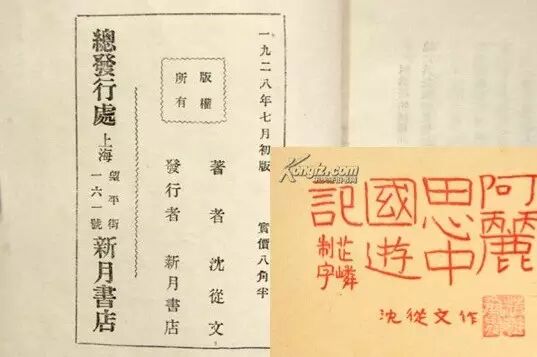 一九二八年七月初版 實價八角半
版權
所有
著者 沈從文
發行者 新月書店
總發行處 上海 望平街
一六一號 新月書店
Kongfz.com
阿麗
思中
國遊
記
芷嶙
制字
沈從文作